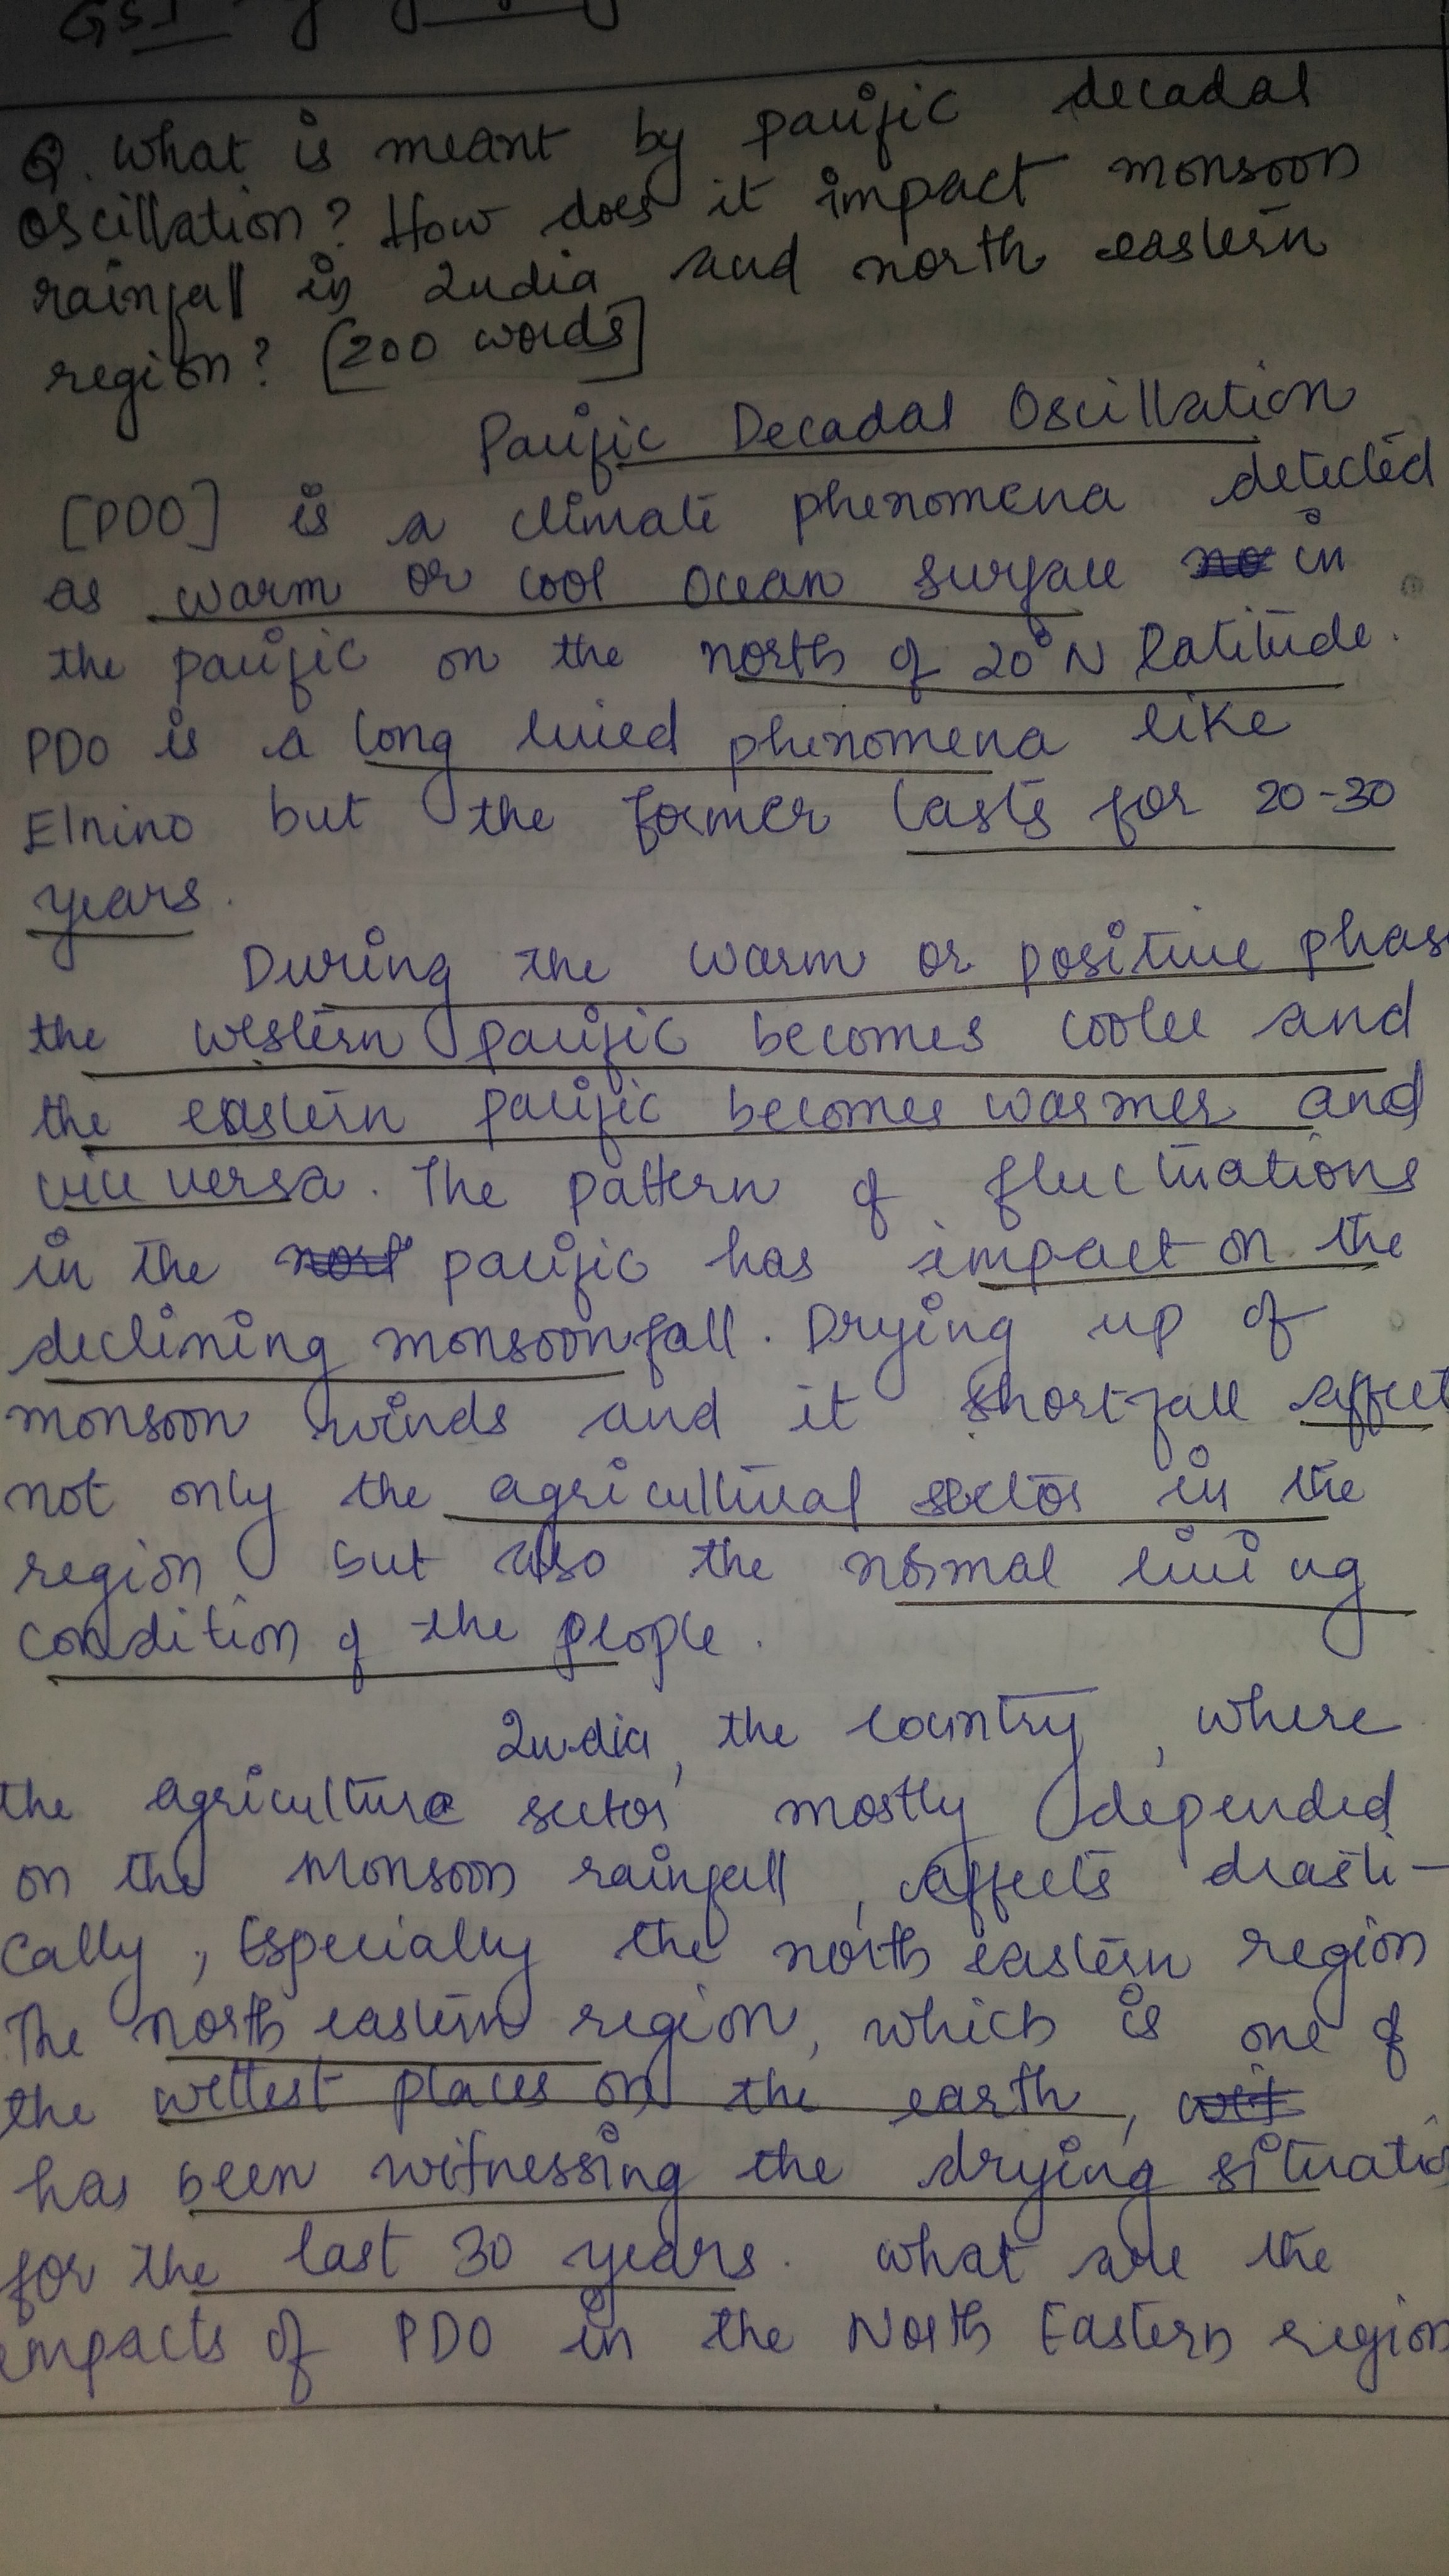 GS1
Q. What is meant by pacific decadal
oscillation? How does it impact monsoon
rainfall in India and north eastern
region? [200 words]
Pacific Decadal Oscillation
[PDO] is a climate phenomena detected
as warm or cool ocean surface in
the pacific on the north of 20°N latitude.
PDO is a long lived phenomena like
Elnino but the former lasts for 20-30
years.
During the warm or positive phas
the western pacific becomes cooler and
the eastern pacific becomes warmer and
vice versa. The pattern of fluctuations
in the pacific has impact on the
declining monsoonfall. Drying up of
monsoon winds and it short-fall affect
not only the agricultural sector in the
region but also the normal living
condition of the people.
India, the country, where
the agriculture sector mostly depended
on the monsoon rainfall, affects drasti-
cally, Especially the north eastern region
The north eastern region, which is one of
the wettest places on the earth,
has been witnessing the drying situatio
for the last 30 years. What are the
impacts of PDO in the North Eastern region